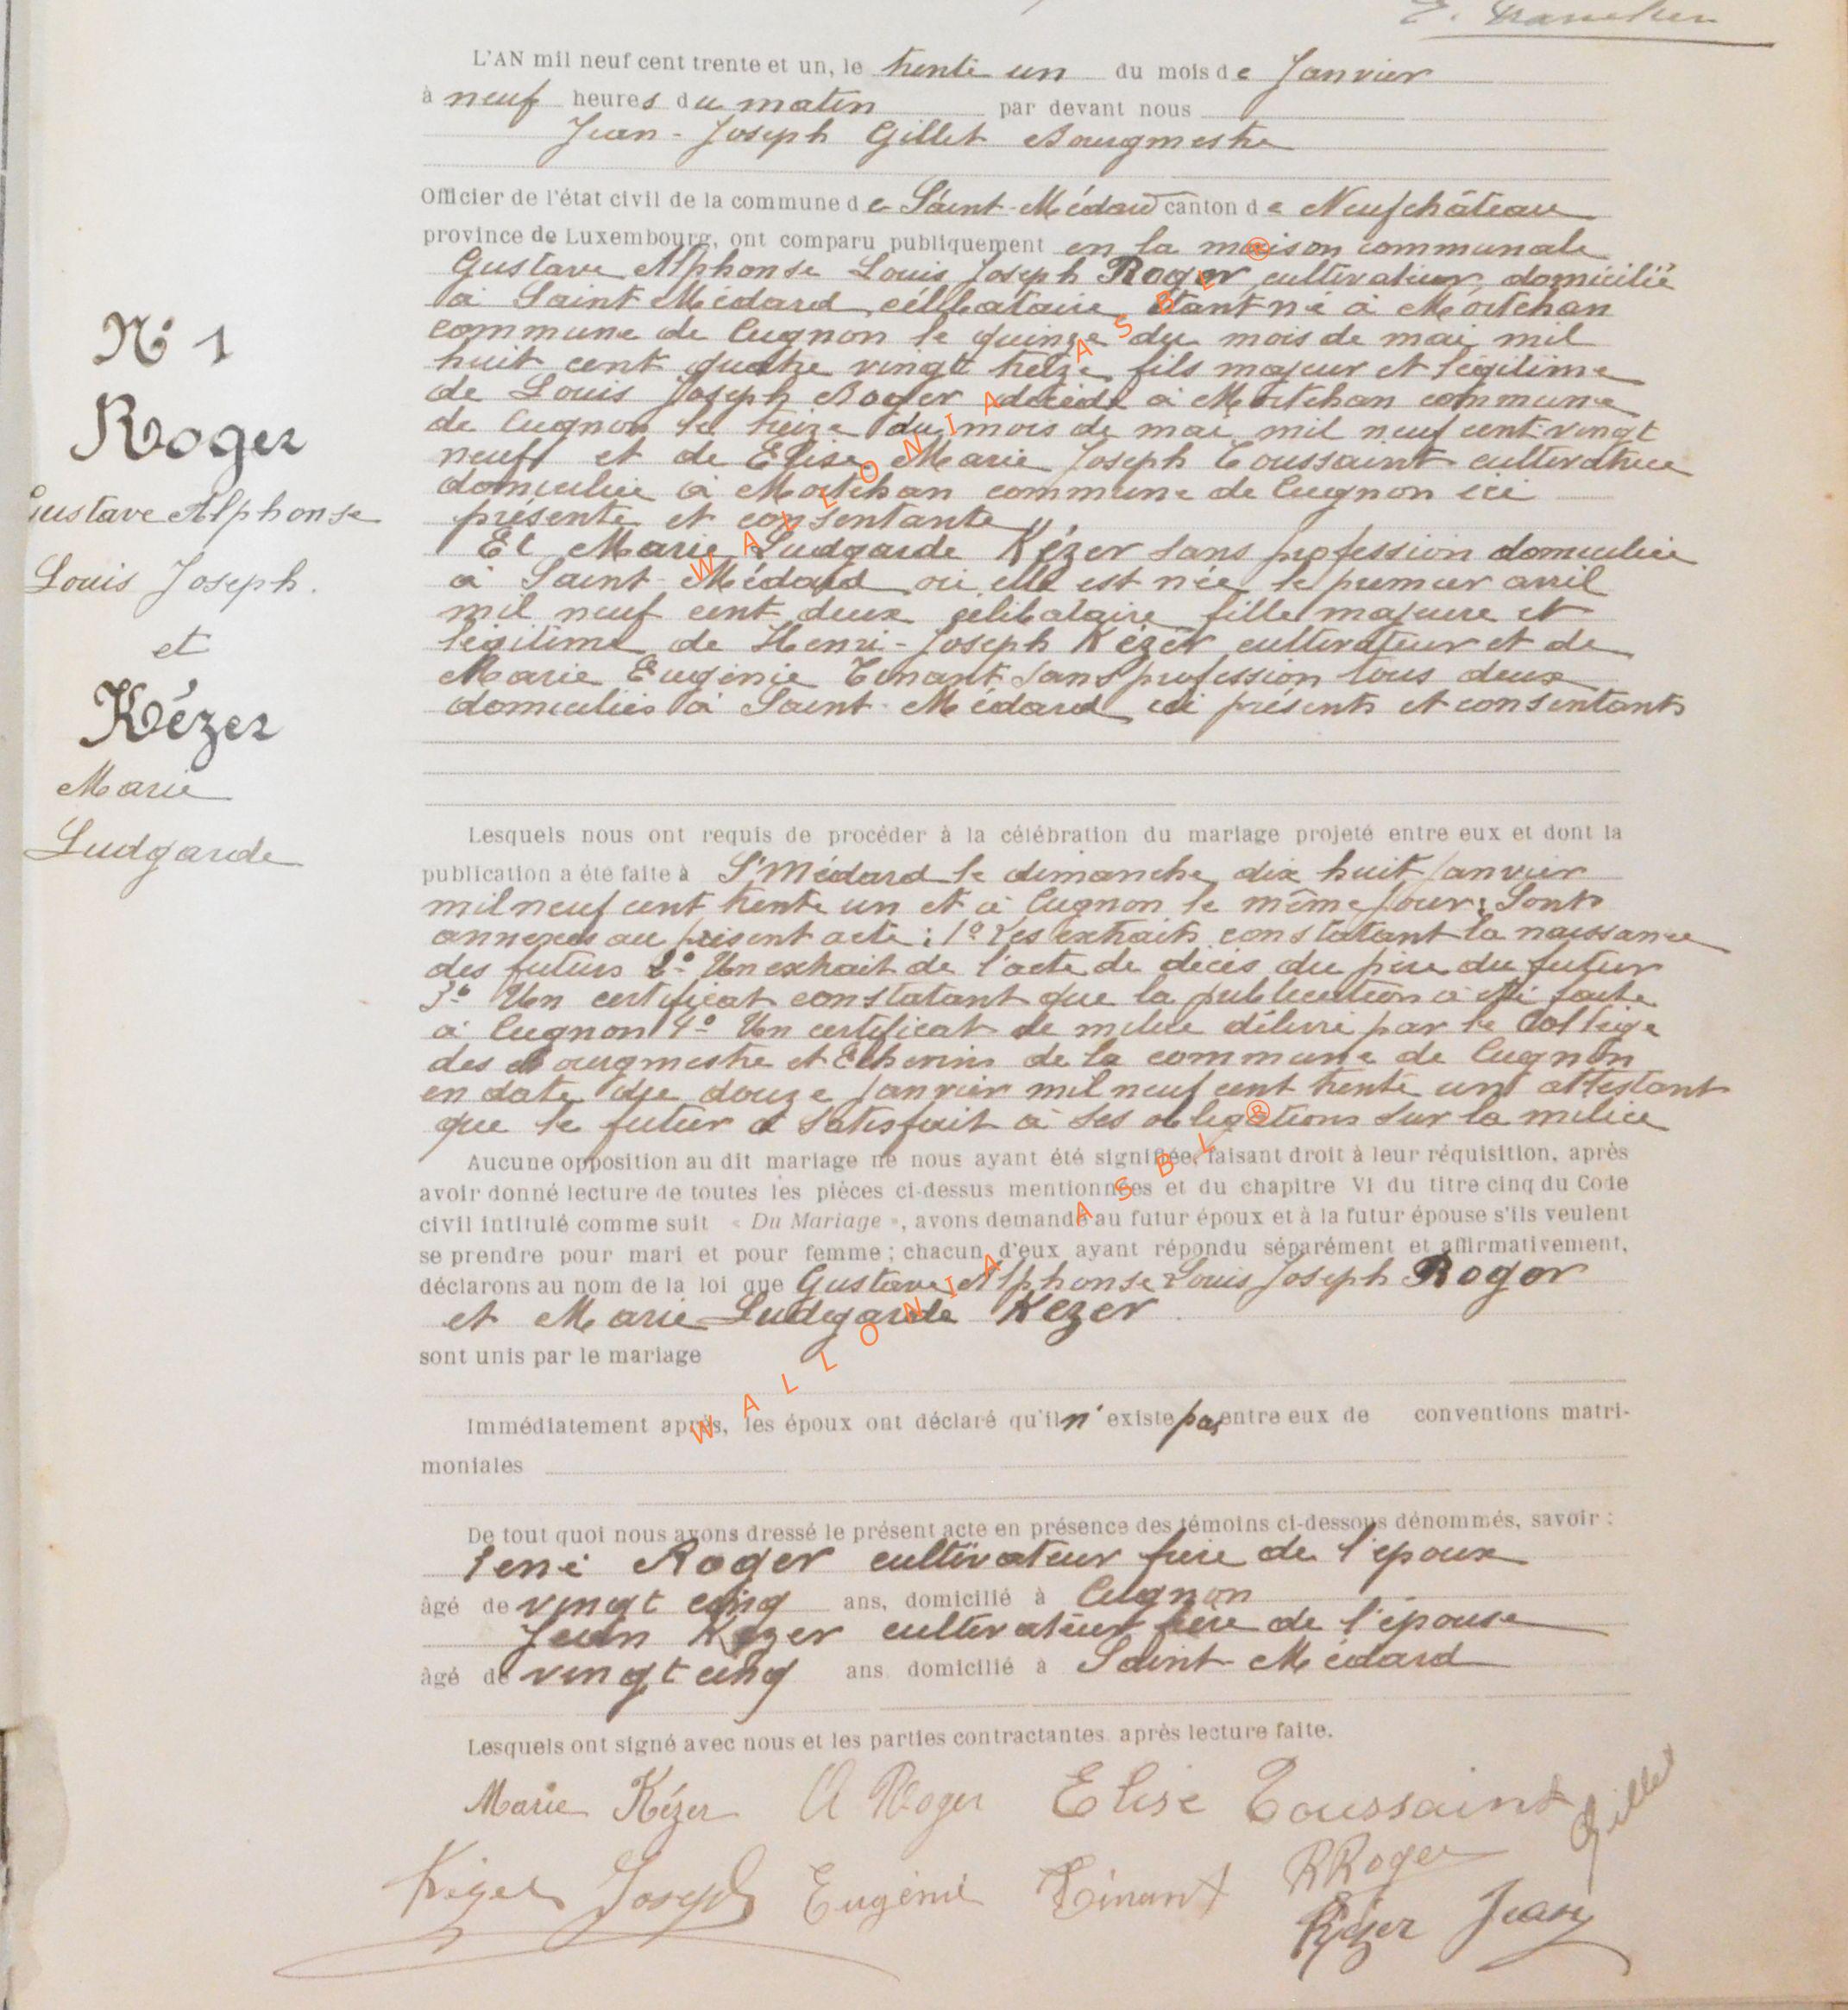 L'AN mil neuf cent trente et un, le trente un du mois de Janvier
à neuf heures du matin par devant nous
Jean-Joseph Gillet Bourgmestre
Officier de l'état civil de la commune de Saint-Médard canton de Neufchâteau
province de Luxembourg, ont comparu publiquement en la maison communale
Gustave Alphonse Louis Joseph Roger cultivateur, domicilié
à Saint Médard célibataire étant né à Mortehan
commune de Cugnon le quinze du mois de mai mil
huit cent quatre vingt treize fils majeur et légitime
de Louis Joseph Roger décédé à Mortehan commune
de Cugnon le treize du mois de mai mil neuf cent vingt
neuf et de Elise Marie Joseph Toussaint cultivatrice
domiciliée à Mortehan commune de Cugnon ici
présente et consentante
Et Marie Ludgarde Kézer sans profession domiciliée
à Saint-Médard où elle est née le premier avril
mil neuf cent deux célibataire fille majeure et
légitime de Henri-Joseph Kézer cultivateur et de
Marie Eugénie Tinant sans profession tous deux
domiciliés à Saint-Médard ici présents et consentants
N° 1
Roger
Gustave Alphonse
Louis Joseph.
et
Kézer
Marie
Ludgarde
Lesquels nous ont requis de procéder à la célébration du mariage projeté entre eux et dont la
publication a été faite à St Médard le dimanche dix huit Janvier
mil neuf cent trente un et à Cugnon le même jour. Sont
annexés au présent acte : 1° Les extraits constatant la naissance
des futurs 2° Un extrait de l'acte de décès du père du futur
3° Un certificat constatant que la publication a été faite
à Cugnon 4° Un certificat de milice délivré par le Collège
des Bourgmestre et Echevins de la commune de Cugnon
en date du douze Janvier mil neuf cent trente un attestant
que le futur a satisfait à ses obligations sur la milice
Aucune opposition au dit mariage ne nous ayant été signifiée, faisant droit à leur réquisition, après
avoir donné lecture de toutes les pièces ci-dessus mentionnées et du chapitre VI du titre cinq du Code
civil intitulé comme suit « Du Mariage », avons demandé au futur époux et à la futur épouse s'ils veulent
se prendre pour mari et pour femme ; chacun d'eux ayant répondu séparément et affirmativement,
déclarons au nom de la loi que Gustave Alphonse Louis Joseph Roger
et Marie Ludegarde Kezer
sont unis par le mariage
Immédiatement après, les époux ont déclaré qu'il n'existe pas entre eux de conventions matri-
moniales
De tout quoi nous avons dressé le présent acte en présence des témoins ci-dessous dénommés, savoir :
René Roger cultivateur frère de l'époux
âgé de vingt cinq ans, domicilié à Cugnon
Jean Kézer cultivateur frère de l'épouse
âgé de vingt cinq ans domicilié à Saint-Médard
Lesquels ont signé avec nous et les parties contractantes après lecture faite.
Marie Kézer A Roger Elise Toussaint Gillet
Kézer Joseph Eugénie Tinant R Roger
Kézer Jean
WALLONIA ASBL ®
WALLONIA ASBL ®